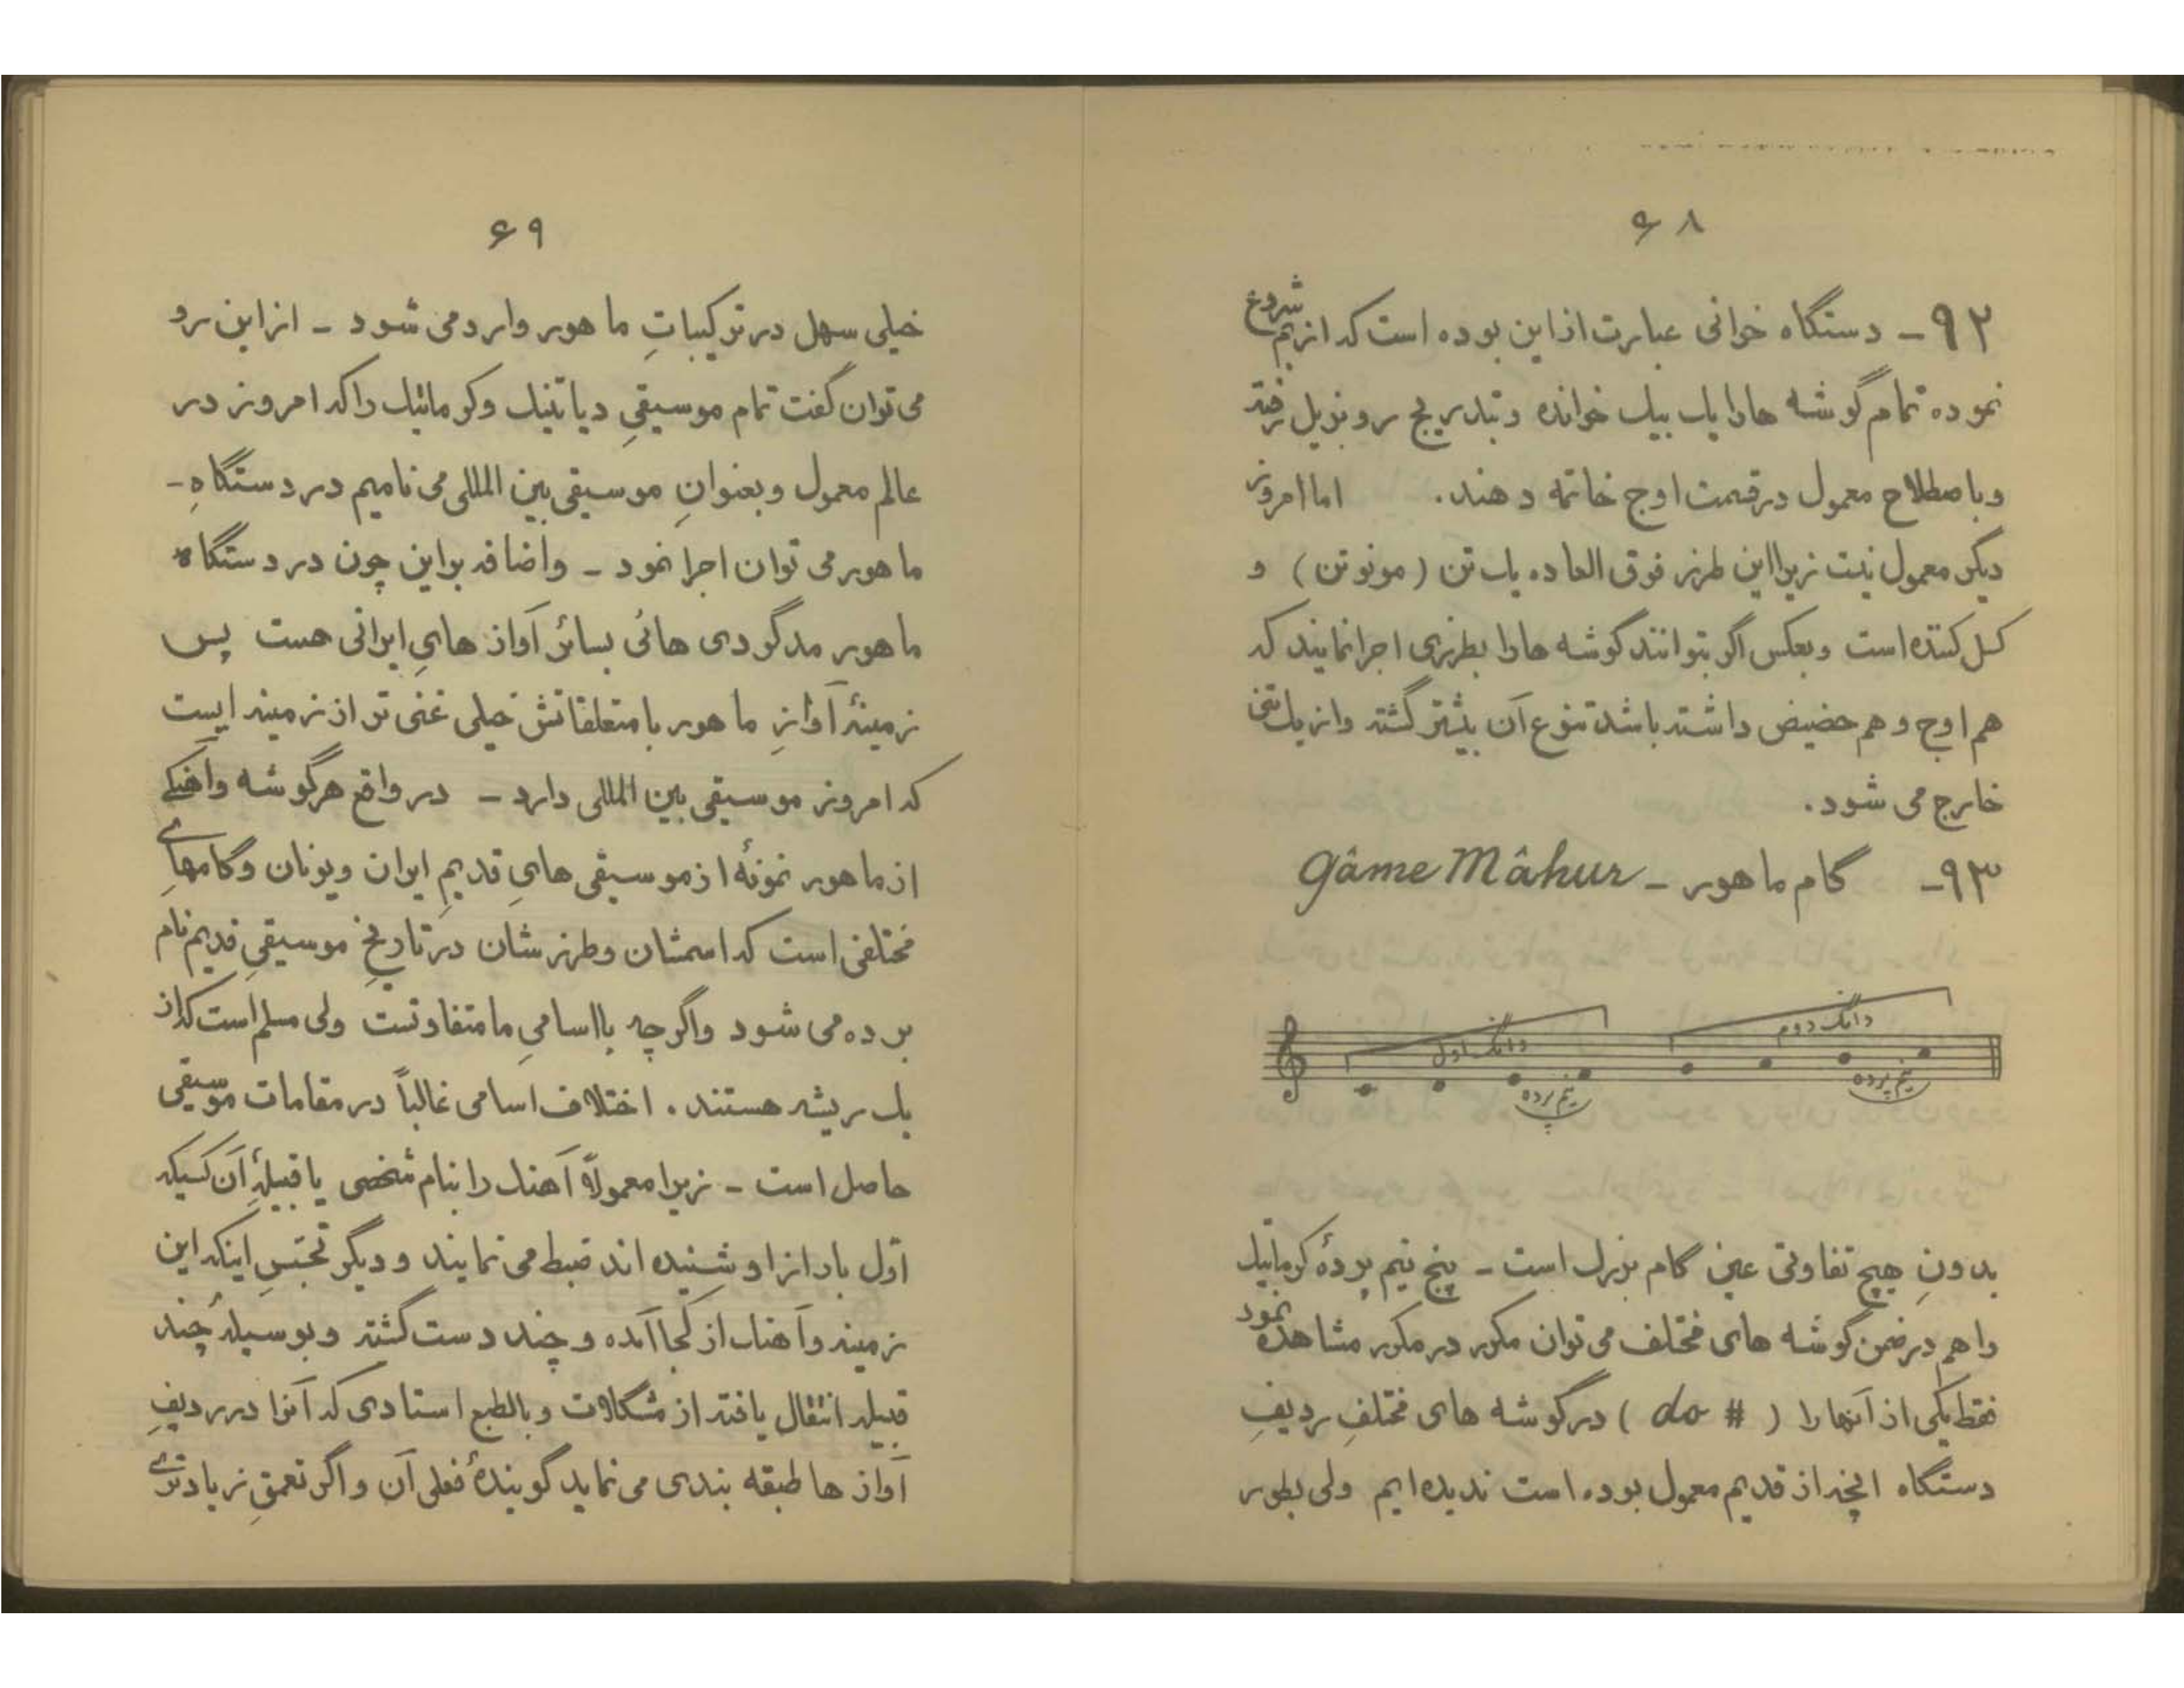 ۶۸
۹۲- دستگاه خوانی عبارت از این بوده است که از بم شروع
نموده تمام گوشه ها را یک بیک خوانده و بتدریج رو بزیل رفته
و باصطلاح معمول در قسمت اوج خاتمه دهند. اما امروز
دیگر معمول نیست زیرا این طرز فوق العاده یک تن (مونوتن) و
کسل کننده است و بعکس اگر بتوانند گوشه ها را بطرزی اجرا نمایند که
هم اوج و هم حضیض داشته باشد تنوع آن بیشتر گشته و از یک تنی
خارج می شود.
۹۳- گام ماهور - Gâme Mâhur
دانگ اول دانگ دوم
نیم پرده نیم پرده
بدونِ هیچ تفاوتی عین گام بزرگ است - پنج نیم پردهٔ کرماتیک
را هم در ضمن گوشه های مختلف می توان مکرر در مکرر مشاهده نمود
فقط یکی از آنها را ( do # ) در گوشه های مختلفِ ردیفِ
دستگاه آنچه از قدیم معمول بوده است ندیده ایم ولی بطور
۶۹
خیلی سهل در ترکیباتِ ماهور وارد می شود - از این رو
می توان گفت تمام موسیقیِ دیاتنیک و کرماتیک را که امروز در
عالم معمول و بعنوانِ موسیقی بین المللی می نامیم در دستگاهِ-
ماهور می توان اجرا نمود - و اضافه بر این چون در دستگاه
ماهور مدگردی هائی بسائر آواز هایِ ایرانی هست پس
زمینهٔ آوازِ ماهور با متعلقاتش خیلی غنی تر از زمینه ایست
که امروز موسیقی بین المللی دارد - در واقع هر گوشه و آهنگی
از ماهور نمونهٔ از موسیقی هایِ قدیمِ ایران و یونان و گامهای
مختلفی است که اسمشان و طرزشان در تاریخِ موسیقیِ قدیم نام
برده می شود و اگرچه با اسامیِ ما متفاوتست ولی مسلم است که از
یک ریشه هستند. اختلاف اسامی غالباً در مقامات موسیقی
حاصل است - زیرا معمولاً آهنگ را بنام شخصی یا قبیلهٔ آن کسیکه
اول بار از او شنیده اند ضبط می نمایند و دیگر تجسسِ اینکه این
زمینه و آهنگ از کجا آمده و چند دست گشته و بوسیلهٔ چند
قبیله انتقال یافته از مشکلات و بالطبع استادی که آنرا در ردیفِ
آواز ها طبقه بندی می نماید گویندهٔ فعلی آن و اگر تعمقِ زیادتری